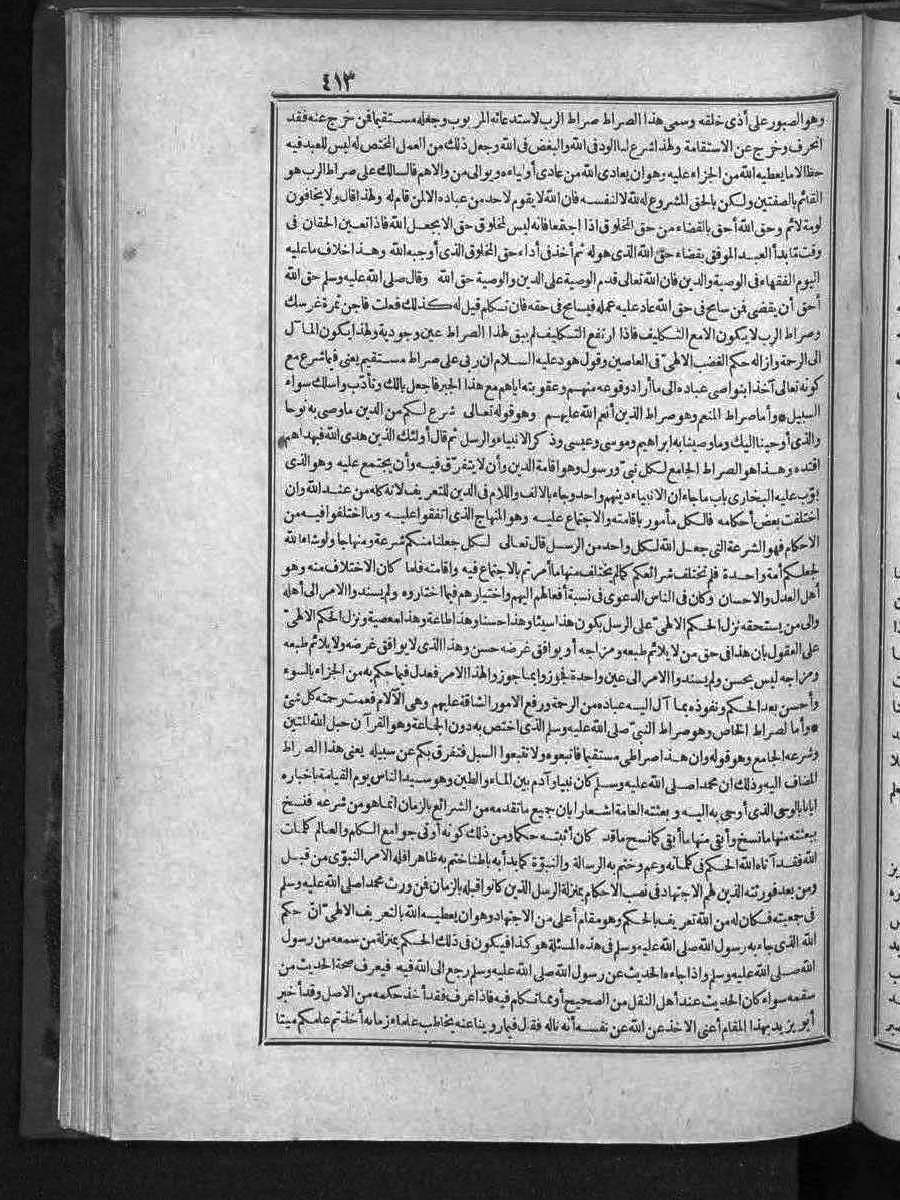 ٤١٣
وهو الصبور على أذى خلقه وسمى هذا الصراط صراط الرب لاستدعائه المربوب وجعله مستقيما فمن خرج عنه فقد
انحرف وخرج عن الاستقامة ولهذا شرع لنا الود فى الله والبغض فى الله وجعل ذلك من العمل المختص له ليس للعبد فيه
حظ الا ما يعطيه الله من الجزاء عليه وهو ان يعادى الله من عادى أولياءه ويوالى من والاهم فالسالك على صراط الرب هو
القائم بالصفتين ولكن بالحق المشروع له لله لا لنفسه فان الله لا يقوم لاحد من عباده الا لمن قام له ولهذا قال ولا يخافون
لومة لائم وحق الله أحق بالقضاء من حق المخلوق اذا اجتمعا فانه ليس لمخلوق حق الا بجعل الله فاذا تعين الحقان فى
وقت ما بدأ العبد الموفق بقضاء حق الله الذى هو له ثم أخذ فى أداء حق المخلوق الذى أوجبه الله وهذا خلاف ما عليه
اليوم الفقهاء فى الوصية والدين فان الله تعالى قدم الوصية على الدين والوصية حق الله وقال صلى الله عليه وسلم حق الله
أحق أن يقضى فمن سامح فى حق الله عاد عليه عمله فيسامح فى حقه فان تكلم قيل له كذلك فعلت فاجن ثمرة غرسك
وصراط الرب لا يكون الا مع التكليف فاذا ارتفع التكليف لم يبق لهذا الصراط عين وجودية ولهذا يكون المآل
الى الرحمة وازالة حكم الغضب الالهىّ فى العاصين وقول هود عليه السلام ان ربى على صراط مستقيم يعنى فيما شرع مع
كونه تعالى آخذا بنواصى عباده الى ما أراد وقوعه منهم وعقوبته اياهم مع هذا الجبر فاجعل بالك وتأدّب واسلك سواء
السبيل * وأما صراط المنعم وهو صراط الذين أنعم الله عليهم وهو قوله تعالى شرع لكم من الدين ما وصى به نوحا
والذى أوحينا اليك وما وصينا به ابراهيم وموسى وعيسى وذكر الانبياء والرسل ثم قال أولئك الذين هدى الله فبهداهم
اقتده وهذا هو الصراط الجامع لكل نبىّ ورسول وهو اقامة الدين وأن لا يتفرّق فيه وأن يجتمع عليه وهو الذى
بوّب عليه البخارى باب ما جاء ان الانبياء دينهم واحد وجاء بالالف واللام فى الدين للتعريف لانه كله من عند الله وان
اختلفت بعض أحكامه فالكل مأمور باقامته والاجتماع عليه وهو المنهاج الذى اتفقوا عليه وما اختلفوا فيه من
الاحكام فهو الشرعة التى جعل الله لكل واحد من الرسل قال تعالى لكل جعلنا منكم شرعة ومنهاجا ولو شاء الله
لجعلكم أمة واحدة فلم تختلف شرائعكم كما لم يختلف منها ما أمرتم بالاجتماع فيه واقامته فلما كان الاختلاف منه وهو
أهل العدل والاحسان وكان فى الناس الدعوى فى نسبة أفعالهم اليهم واختيارهم فيما اختاروه ولم يسندوا الامر الى أهله
والى من يستحقه نزل الحكم الالهىّ على الرسل بكون هذا سيئا وهذا حسنا وهذا طاعة وهذا معصية ونزل الحكم الالهىّ
على العقول بان هذا فى حق من لا يلائم طبعه ومزاجه أو يوافق غرضه حسن وهذا الذى لا يوافق غرضه ولا يلائم طبعه
ومزاجه ليس بحسن ولم يسندوا الامر الى عين واحدة فجوزوا بما جوزوا لهذا الامر فعدل فيما حكم به من الجزاء بالسوء
وأحسن بعد الحكم ونفوذه بما آل اليه عباده من الرحمة ورفع الامور الشاقة عليهم وهى الآلام فعمت رحمته كل شئ
* وأما الصراط الخاص وهو صراط النبىّ صلى الله عليه وسلم الذى اختص به دون الجماعة وهو القرآن حبل الله المتين
وشرعه الجامع وهو قوله وان هذا صراطى مستقيما فاتبعوه ولا تتبعوا السبل فتفرق بكم عن سبيله يعنى هذا الصراط
المضاف اليه وذلك ان محمدا صلى الله عليه وسلم كان نبيا وآدم بين الماء والطين وهو سيد الناس يوم القيامة باخباره
ايانا بالوحى الذى أوحى به اليه وبعثته العامة اشعار بان جميع ما تقدمه من الشرائع بالزمان انما هو من شرعه فنسخ
ببعثته منها ما نسخ وأبقى منها ما أبقى كما نسخ ما قد كان أثبته حكما ومن ذلك كونه أوتى جوامع الكلم والعالم كلمات
الله فقد آتاه الله الحكم فى كلماته وعم وختم به الرسالة والنبوّة كما بدأ به باطنا ختم به ظاهرا فله الامر النبوّى من قبل
ومن بعد فورثته الذين لهم الاجتهاد فى نصب الاحكام بمنزلة الرسل الذين كانوا قبله بالزمان فمن ورث محمدا صلى الله عليه وسلم
فى جمعيته فكان له من الله تعريف بالحكم وهو مقام أعلى من الاجتهاد وهو ان يعطيه الله بالتعريف الالهىّ انّ حكم
الله الذى جاء به رسول الله صلى الله عليه وسلم فى هذه المسئلة هو كذا فيكون فى ذلك الحكم بمنزلة من سمعه من رسول
الله صلى الله عليه وسلم واذا جاءه الحديث عن رسول الله صلى الله عليه وسلم رجع الى الله فيه فيعرف صحة الحديث من
سقمه سواء كان الحديث عند أهل النقل من الصحيح أو مما تكلم فيه فاذا عرف فقد أخذ حكمه من الاصل وقد أخبر
أبو يزيد بهذا المقام أعنى الاخذ عن الله عن نفسه أنه ناله فقال فيما روينا عنه يخاطب علماء زمانه أخذتم علمكم ميتا